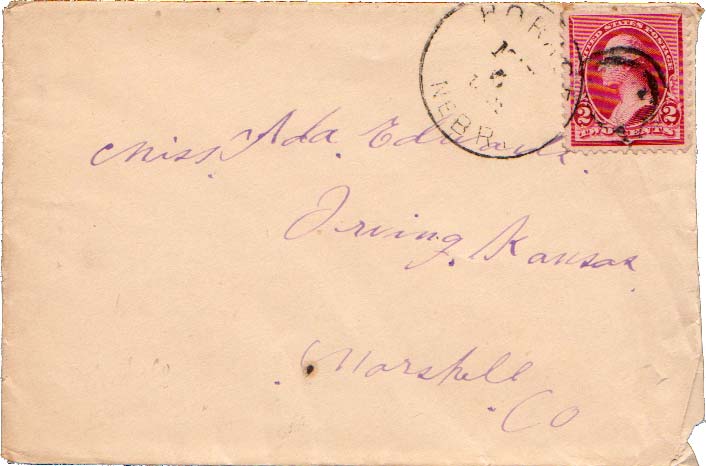 NEBR.
UNITED STATES POSTAGE
2 2
TWO CENTS
Miss. Ada. Edwards.
Irving, Kansas
Marshell
Co